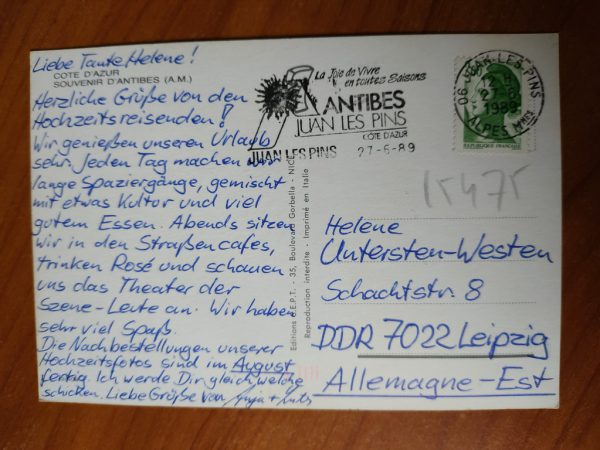 Liebe Tante Helene!
COTE D'AZUR
SOUVENIR D'ANTIBES (A.M.)
Herzliche Grüße von den
Hochzeitsreisenden!
Wir genießen unseren Urlaub
sehr. Jeden Tag machen wir
lange Spaziergänge, gemischt
mit etwas Kultur und viel
gutem Essen. Abends sitzen
wir in den Straßencafes,
trinken Rosé und schauen
uns das Theater der
Szene-Leute an. Wir haben
sehr viel Spaß.
Die Nachbestellungen unserer
Hochzeitsfotos sind im August
fertig. Ich werde Dir gleich welche
schicken. Liebe Grüße von
Editions E.P.T. - 35, Boulevard Gorbella - NICE
Reproduction interdite - Imprimé en Italie
La Joie de Vivre
en toutes Saisons
ANTIBES
JUAN LES PINS
CÔTE D'AZUR
JUAN LES PINS 27-6-89
06 JUAN-LES-PINS
1989
ALPES MMES
REPUBLIQUE FRANÇAISE
15475
Helene
Untersten-Westen
Schachtstr. 8
DDR 7022 Leipzig
Allemagne-Est